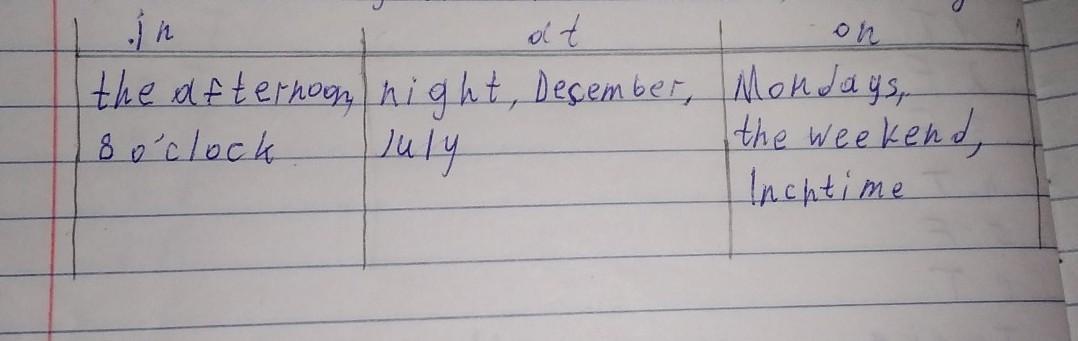 in at on
the afternoon, night, Desember, Mondays,
8 o'clock July the weekend,
lnchtime